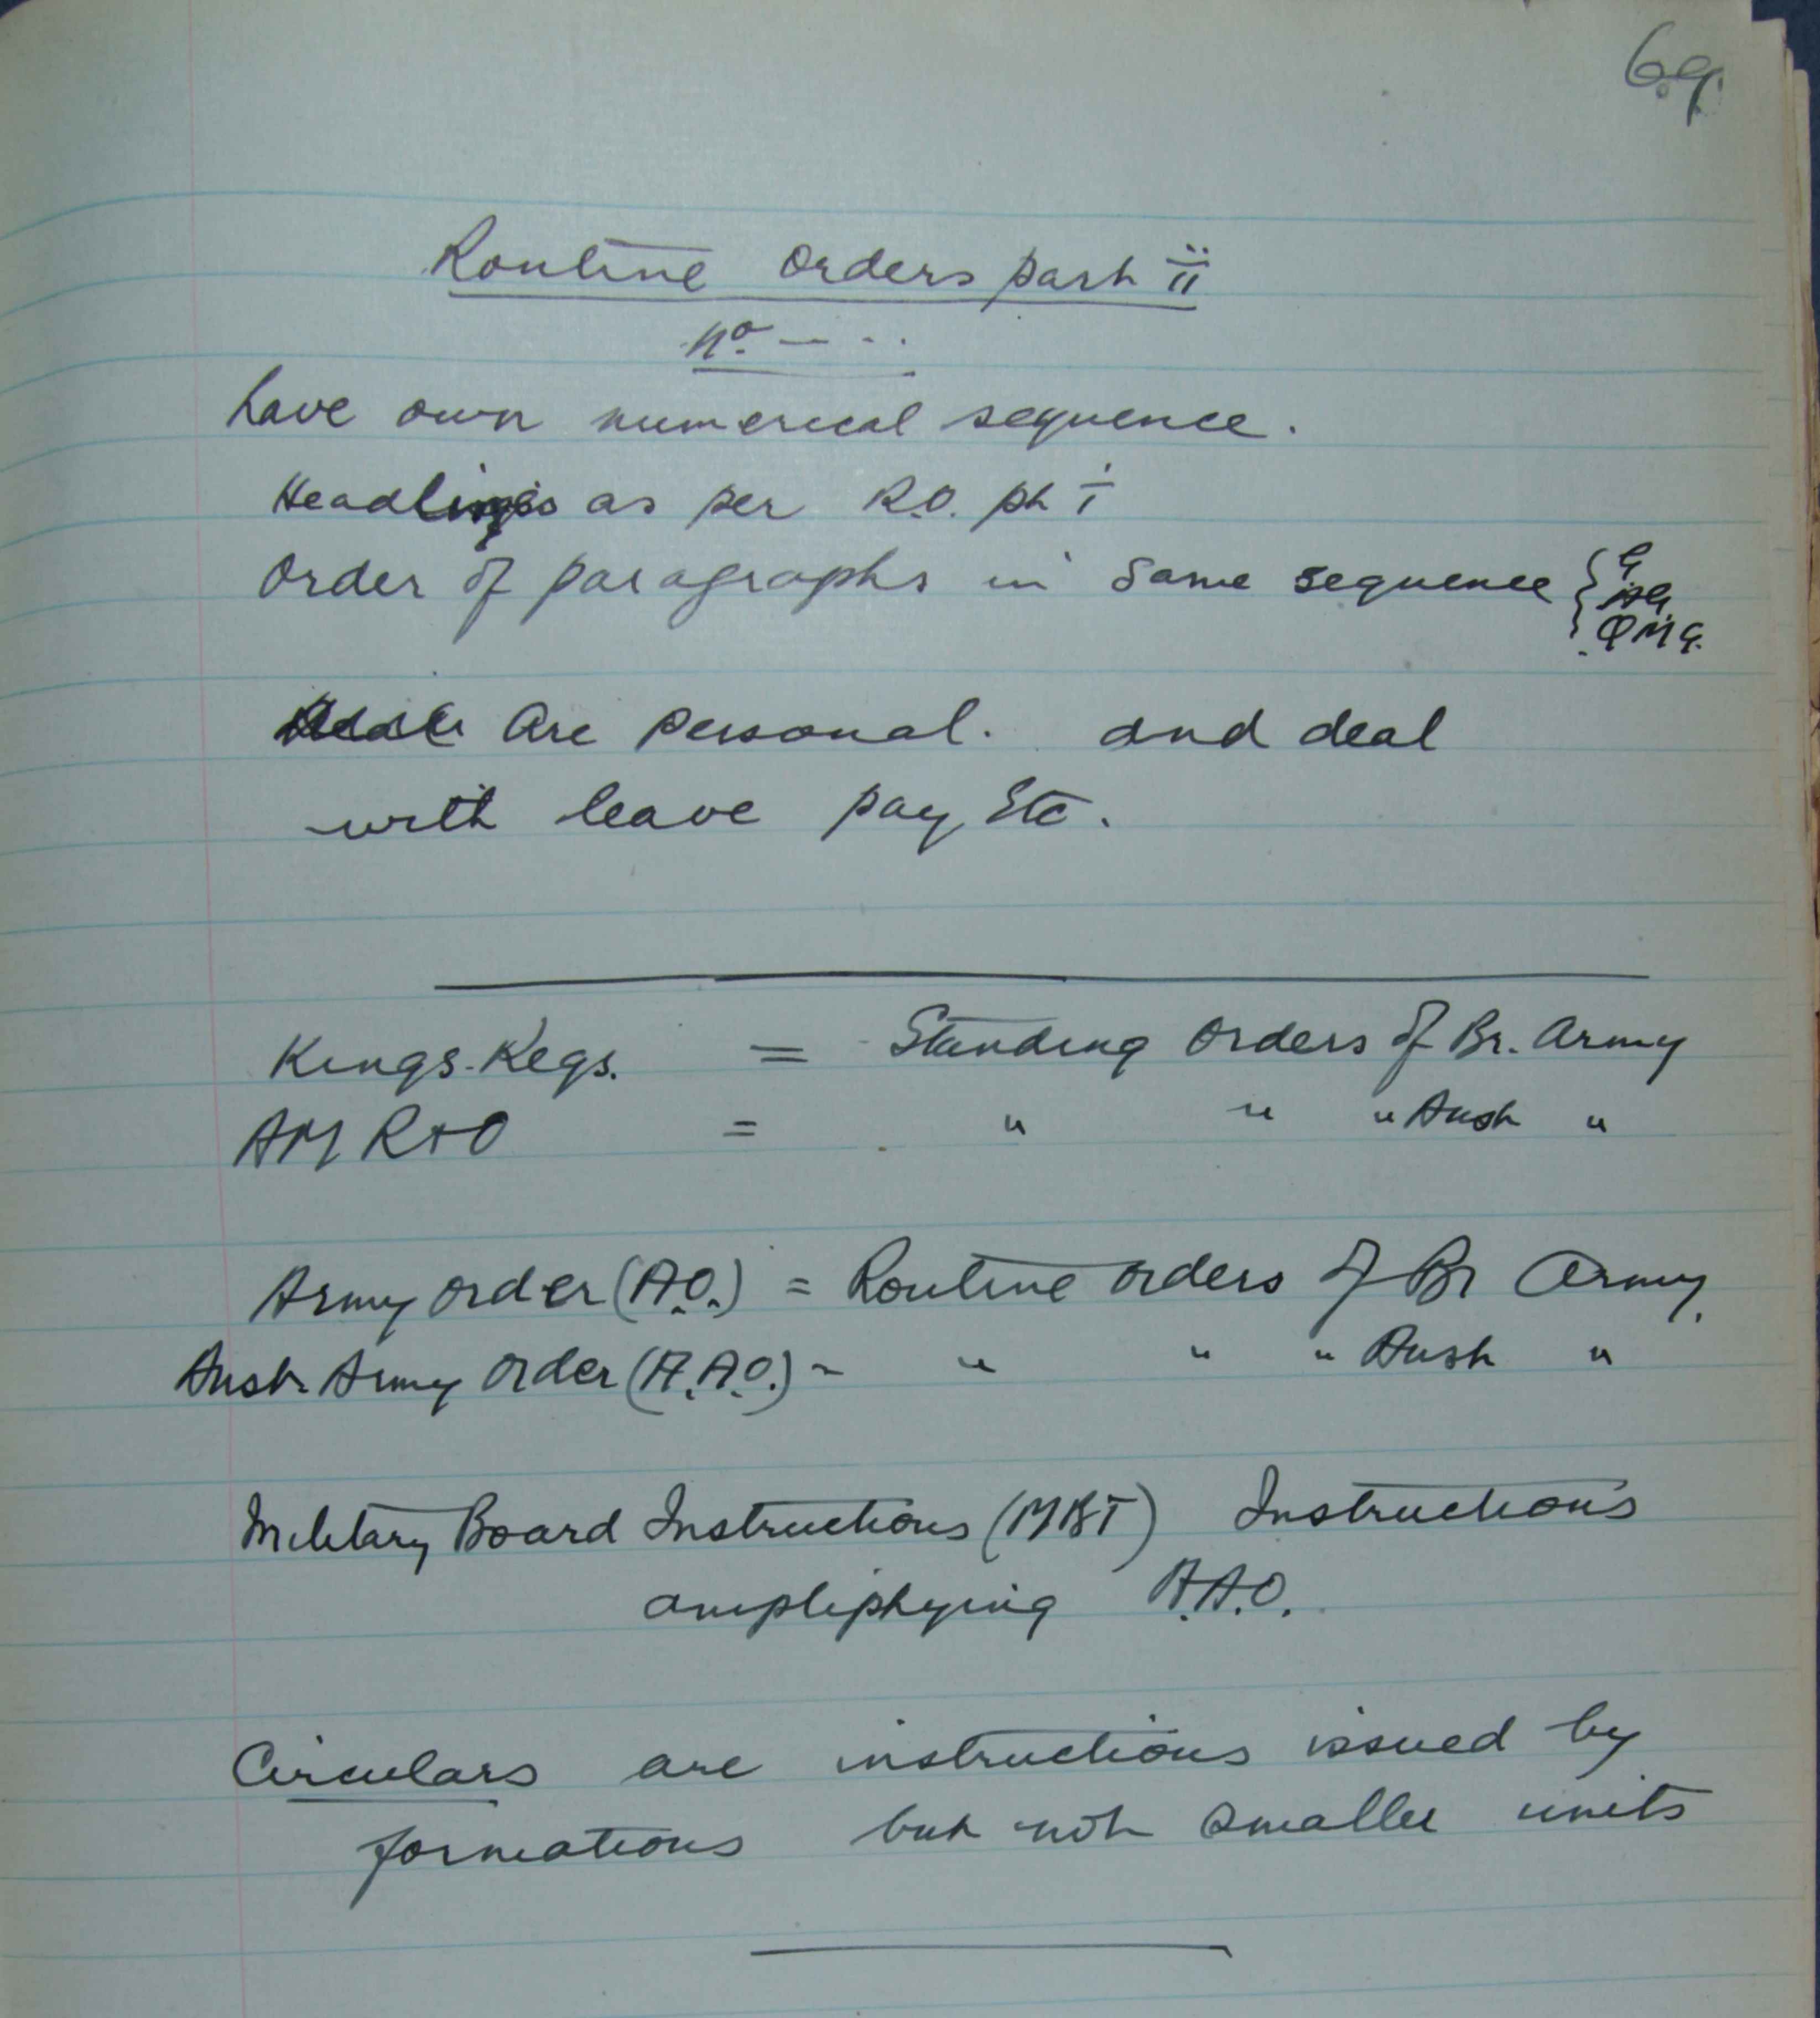 69.
Routine Orders part ii
No. — - -
have own numerical sequence.
Headings as per R.O. pt i
Order of paragraphs in same sequence { G
AG
QMG.
Are personal. and deal
with leave pay Etc.
Kings Regs. = Standing Orders of Br. Army
AM R+O = " " " Aust "
Army order (A.O.) = Routine orders of Br Army.
Aust. Army Order (A.A.O.) - " " " Aust "
Military Board Instructions (MBI) Instructions
ampliphying A.A.O.
Circulars are instructions issued by
formations but not smaller units